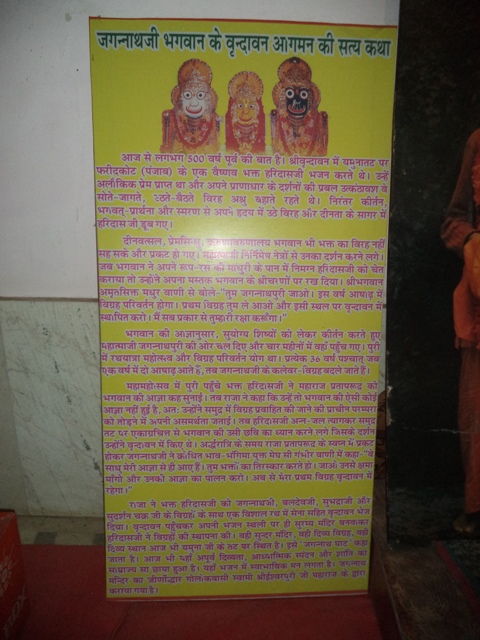 जगन्नाथजी भगवान के वृन्दावन आगमन की सत्य कथा
आज से लगभग 500 वर्ष पूर्व की बात है। श्रीवृन्दावन में यमुनातट पर
फरीदकोट (पंजाब) के एक वैष्णव भक्त हरिदासजी भजन करते थे। उन्हें
अलौकिक प्रेम प्राप्त था और अपने प्राणाधार के दर्शनों की प्रबल उत्कठावश वे
सोते-जागते, उठते-बैठते विरह अश्रु बहाते रहते थे। निरंतर कीर्तन,
भगवत्-प्रार्थना और स्मरण से अपने हृदय में उठे विरह और दीनता के सागर में
हरिदास जी डूब गए।
दीनवत्सल, प्रेमसिन्धु, करुणावरुणालय भगवान भी भक्त का विरह नहीं
सह सके और प्रकट हो गए। महात्माजी निर्निमेष नेत्रों से उनका दर्शन करने लगे।
जब भगवान ने अपने रूप-रस की माधुरी के पान में निमग्न हरिदासजी को चेत
कराया तो उन्होंने अपना मस्तक भगवान के श्रीचरणों पर रख दिया। श्रीभगवान
अमृतसिक्त मधुर वाणी से बोले-"तुम जगन्नाथपुरी जाओ। इस वर्ष आषाढ़ में
विग्रह परिवर्तन होगा। प्रथम विग्रह तुम ले आओ और इसी स्थल पर वृन्दावन में
स्थापित करो। मैं सब प्रकार से तुम्हारी रक्षा करूँगा।"
भगवान की आज्ञानुसार, सुयोग्य शिष्यों को लेकर कीर्तन करते हुए
महात्माजी जगन्नाथपुरी की ओर चल दिए और चार महीनों में वहां पहुँच गए। पुरी
में रथयात्रा महोत्सव और विग्रह परिवर्तन योग था। प्रत्येक 36 वर्ष पश्चात् जब
एक वर्ष में दो आषाढ़ आते हैं, तब जगन्नाथजी के कलेवर-विग्रह बदले जाते हैं।
महामहोत्सव में पुरी पहुँचे भक्त हरिदासजी ने महाराज प्रतापरूद्र को
भगवान की आज्ञा कह सुनाई। तब राजा ने कहा कि उन्हें तो भगवान की ऐसी कोई
आज्ञा नहीं हुई है, अतः उन्होंने समुद्र में विग्रह प्रवाहित की जाने की प्राचीन परम्परा
को तोड़ने में अपनी असमर्थता जताई। तब हरिदासजी अन्न-जल त्यागकर समुद्र
तट पर एकाग्रचित्त से भगवान की उसी छवि का ध्यान करने लगे जिसके दर्शन
उन्होंने वृन्दावन में किए थे। अर्द्धरात्रि के समय राजा प्रतापरूद्र के स्वप्न में प्रकट
होकर जगन्नाथजी ने क्रोधित भाव-भंगिमा युक्त मेघ सी गंभीर वाणी में कहा-"वे
साधु मेरी आज्ञा से ही आए हैं। तुम भक्त का तिरस्कार करते हो। जाओ उनसे क्षमा
माँगो और उनकी आज्ञा का पालन करो। अब से मेरा प्रथम विग्रह वृन्दावन में
रहेगा।"
राजा ने भक्त हरिदासजी को जगन्नाथजी, बलदेवजी, सुभद्राजी और
सुदर्शन चक्र जी के विग्रहों के साथ एक विशाल रथ में सेना सहित वृन्दावन भेज
दिया। वृन्दावन पहुँचकर अपनी भजन स्थली पर ही सुरम्य मंदिर बनवाकर
हरिदासजी ने विग्रहों की स्थापना की। वही सुन्दर मंदिर, वही दिव्य विग्रह, वही
दिव्य स्थान आज भी यमुना जी के तट पर स्थित है। इसे जगन्नाथ घाट कहा
जाता है। आज भी यहाँ अपूर्व दिव्यता, आध्यात्मिक स्पंदन और शांति का
साम्राज्य सा छाया हुआ है। यहाँ भजन में स्वाभाविक मन लगता है। जगन्नाथ
मन्दिर का जीर्णोद्धार गोलोकवासी स्वामी श्रीईश्वरपुरी जी महाराज के द्वारा
कराया गया है।